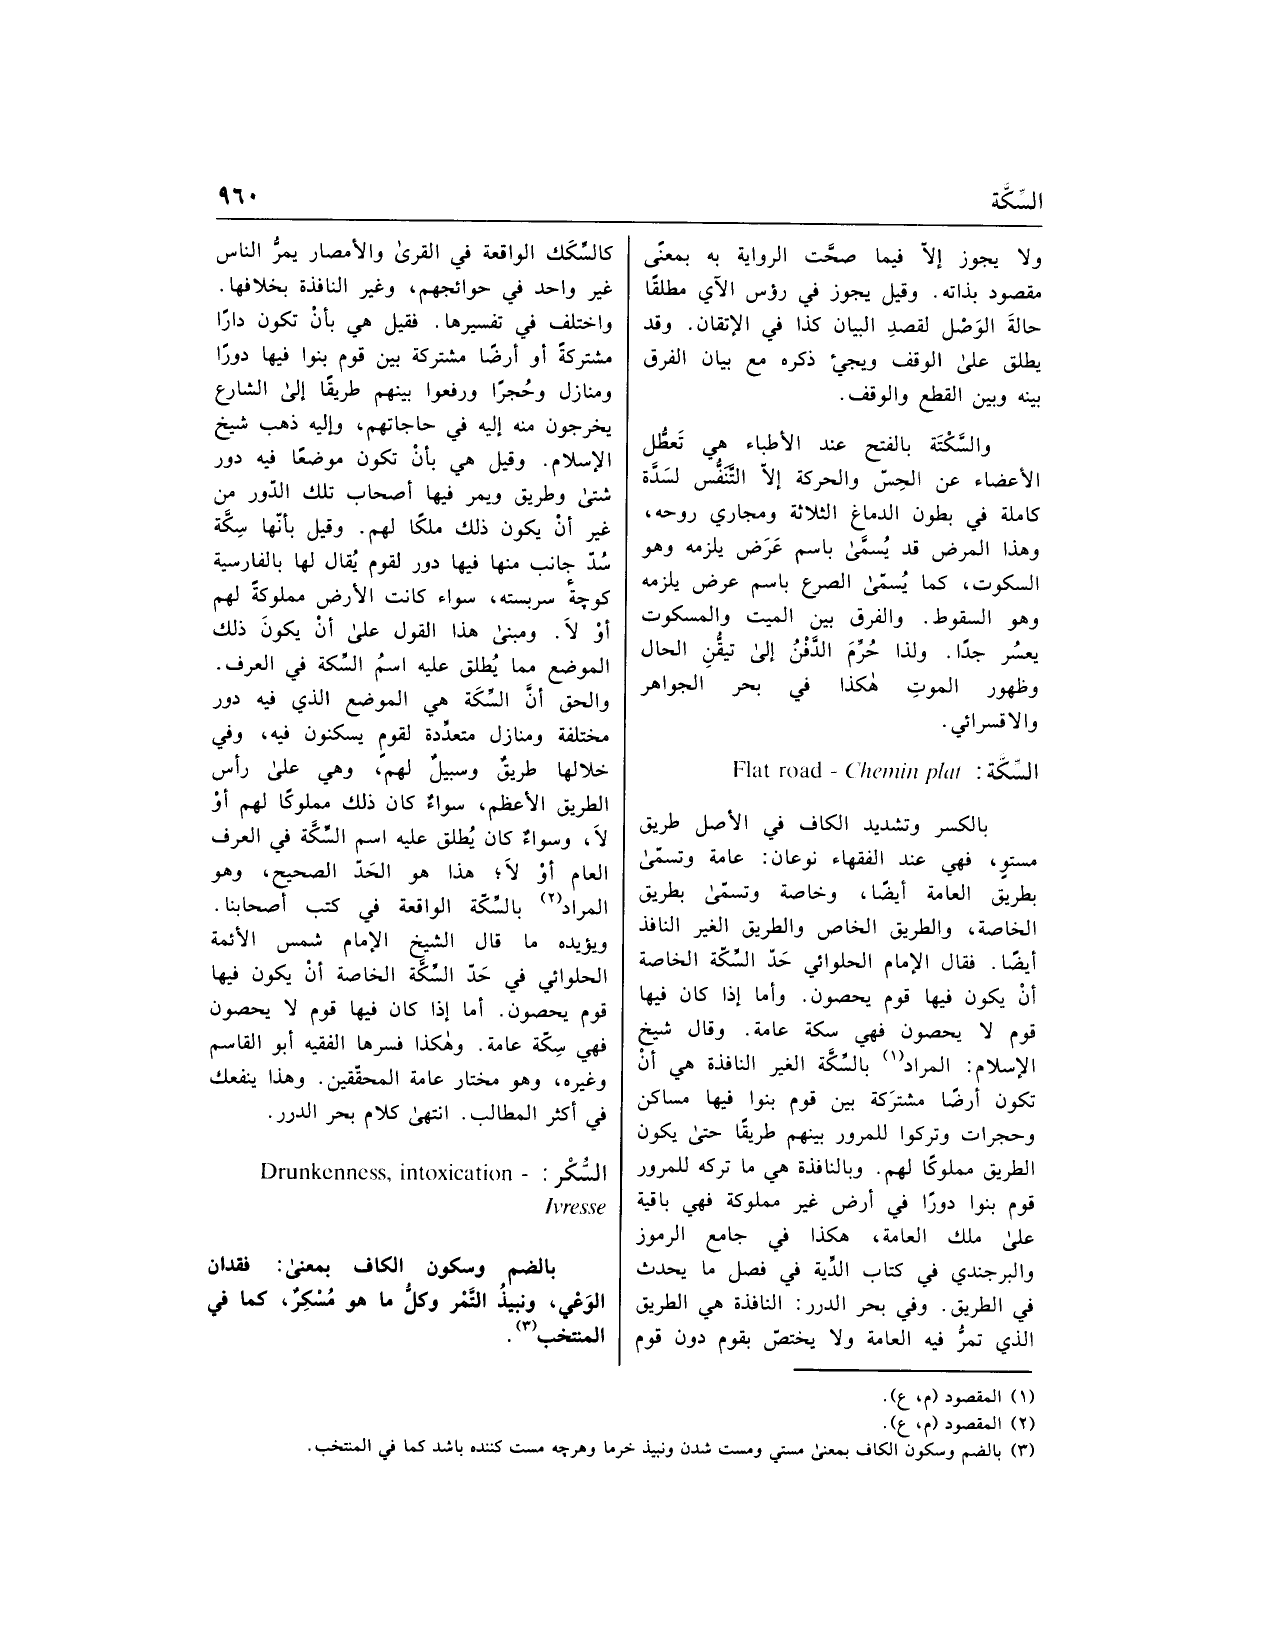 السِّكَّة
٩٦٠
ولا يجوز إلاّ فيما صحَّت الرواية به بمعنًى
مقصود بذاته. وقيل يجوز في رؤس الآي مطلقًا
حالةَ الوَصْل لقصدِ البيان كذا في الإتقان. وقد
يطلق علىٰ الوقف ويجيْ ذكره مع بيان الفرق
بينه وبين القطع والوقف.
والسَّكْتَة بالفتح عند الأطباء هي تَعطُّل
الأعضاء عن الحِسّ والحركة إلاّ التَّنَفُّس لسَدَّة
كاملة في بطون الدماغ الثلاثة ومجاري روحه،
وهذا المرض قد يُسمَّىٰ باسم عَرَض يلزمه وهو
السكوت، كما يُسمّىٰ الصرع باسم عرض يلزمه
وهو السقوط. والفرق بين الميت والمسكوت
يعسُر جدًا. ولذا حُرِّمَ الدَّفْنُ إلىٰ تيقُّنِ الحال
وظهور الموتِ هٰكذا في بحر الجواهر
والاقسرائي.
السِّكَّة: Flat road - Chemin plat
بالكسر وتشديد الكاف في الأصل طريق
مستوٍ، فهي عند الفقهاء نوعان: عامة وتسمّىٰ
بطريق العامة أيضًا، وخاصة وتسمّىٰ بطريق
الخاصة، والطريق الخاص والطريق الغير النافذ
أيضًا. فقال الإمام الحلوائي حَدّ السِّكّة الخاصة
أنْ يكون فيها قوم يحصون. وأما إذا كان فيها
قوم لا يحصون فهي سكة عامة. وقال شيخ
الإسلام: المراد(١) بالسِّكَّة الغير النافذة هي أنْ
تكون أرضًا مشتَركة بين قوم بنوا فيها مساكن
وحجرات وتركوا للمرور بينهم طريقًا حتىٰ يكون
الطريق مملوكًا لهم. وبالنافذة هي ما تركه للمرور
قوم بنوا دورًا في أرض غير مملوكة فهي باقية
علىٰ ملك العامة، هكذا في جامع الرموز
والبرجندي في كتاب الدِّية في فصل ما يحدث
في الطريق. وفي بحر الدرر: النافذة هي الطريق
الذي تمرُّ فيه العامة ولا يختصّ بقوم دون قوم
كالسِّكَك الواقعة في القرىٰ والأمصار يمرُّ الناس
غير واحد في حوائجهم، وغير النافذة بخلافها.
واختلف في تفسيرها. فقيل هي بأنْ تكون دارًا
مشتركةً أو أرضًا مشتركة بين قوم بنوا فيها دورًا
ومنازل وحُجرًا ورفعوا بينهم طريقًا إلىٰ الشارع
يخرجون منه إليه في حاجاتهم، وإليه ذهب شيخ
الإسلام. وقيل هي بأنْ تكون موضعًا فيه دور
شتىٰ وطريق ويمر فيها أصحاب تلك الدّور من
غير أنْ يكون ذلك ملكًا لهم. وقيل بأنّها سِكَّة
سُدّ جانب منها فيها دور لقوم يُقال لها بالفارسية
كوچهٔ سربسته، سواء كانت الأرض مملوكةً لهم
أوْ لاَ. ومبنىٰ هذا القول علىٰ أنْ يكونَ ذلك
الموضع مما يُطلق عليه اسمُ السِّكة في العرف.
والحق أنَّ السِّكَة هي الموضع الذي فيه دور
مختلفة ومنازل متعدِّدة لقومٍ يسكنون فيه، وفي
خلالها طريقٌ وسبيلٌ لهم، وهي علىٰ رأس
الطريق الأعظم، سواءٌ كان ذلك مملوكًا لهم أوْ
لاَ، وسواءٌ كان يُطلق عليه اسم السِّكَّة في العرف
العام أوْ لاَ؛ هذا هو الحَدّ الصحيح، وهو
المراد(٢) بالسِّكّة الواقعة في كتب أصحابنا.
ويؤيده ما قال الشيخ الإمام شمس الأئمة
الحلوائي في حَدّ السِّكَّة الخاصة أنْ يكون فيها
قوم يحصون. أما إذا كان فيها قوم لا يحصون
فهي سِكّة عامة. وهٰكذا فسرها الفقيه أبو القاسم
وغيره، وهو مختار عامة المحقّقين. وهذا ينفعك
في أكثر المطالب. انتهىٰ كلام بحر الدرر.
السُّكْر: Drunkenness, intoxication -
Ivresse
بالضم وسكون الكاف بمعنىٰ: فقدان
الوَعْي، ونبيذُ التَّمْر وكلُّ ما هو مُسْكِرٌ، كما في
المنتخب(٣).
(١) المقصود (م، ع).
(٢) المقصود (م، ع).
(٣) بالضم وسكون الكاف بمعنىٰ مستي ومست شدن ونبيذ خرما وهرچه مست كننده باشد كما في المنتخب.